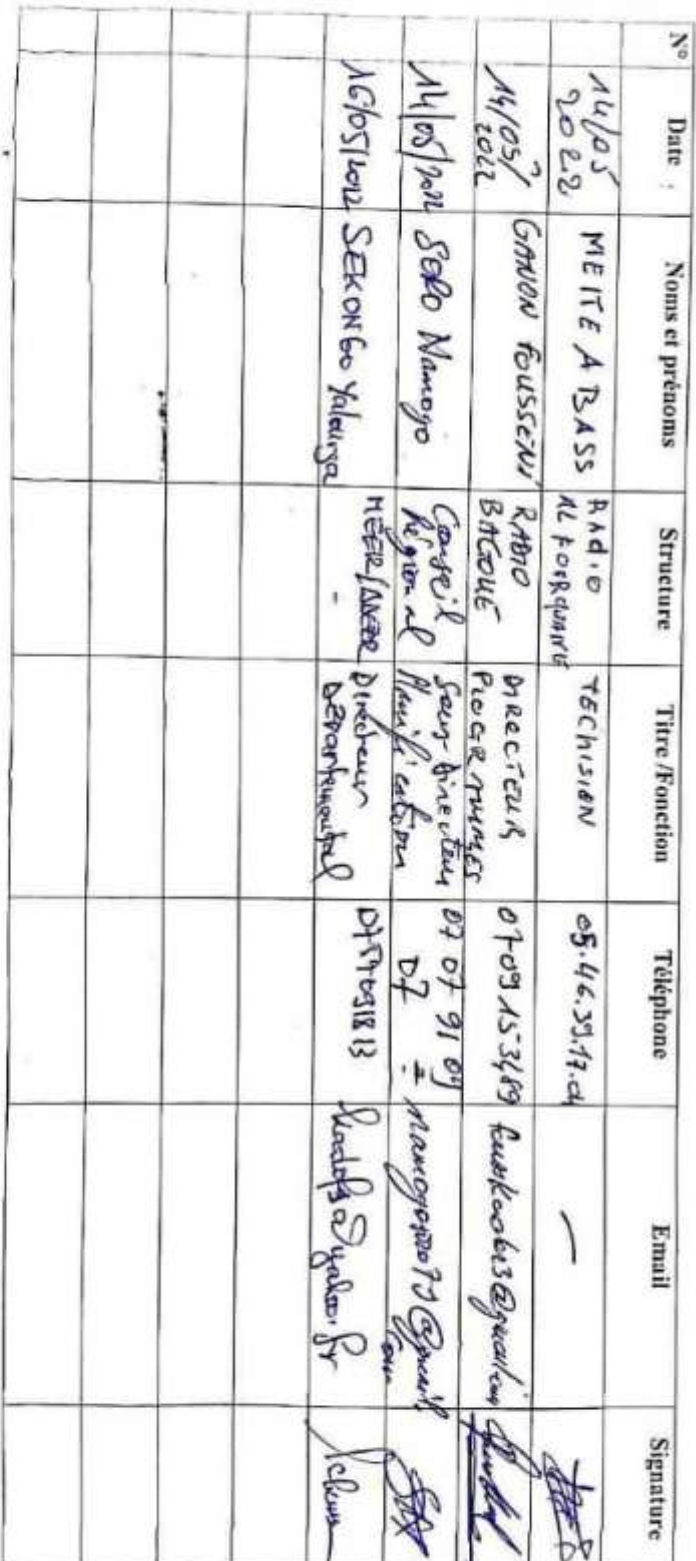 N° Date : Noms et prénoms Structure Titre /Fonction Téléphone Email Signature
14/05 2022 MEITE ABASS Radio AL FOURQUANE TECHISION 05.46.39.17.04 —
14/05/ 2022 GANON FOUSSENI RADIO BAGOUE DIRECTEUR PROGRAMMES 0709153489
14/05/2022 SORO Namogo Conseil Régional Sous Directeur Planification 07 07 91 09 07
16/05/2022 SEKONGO Yalourga MEER/ Directeur Départemental @yahoo.fr